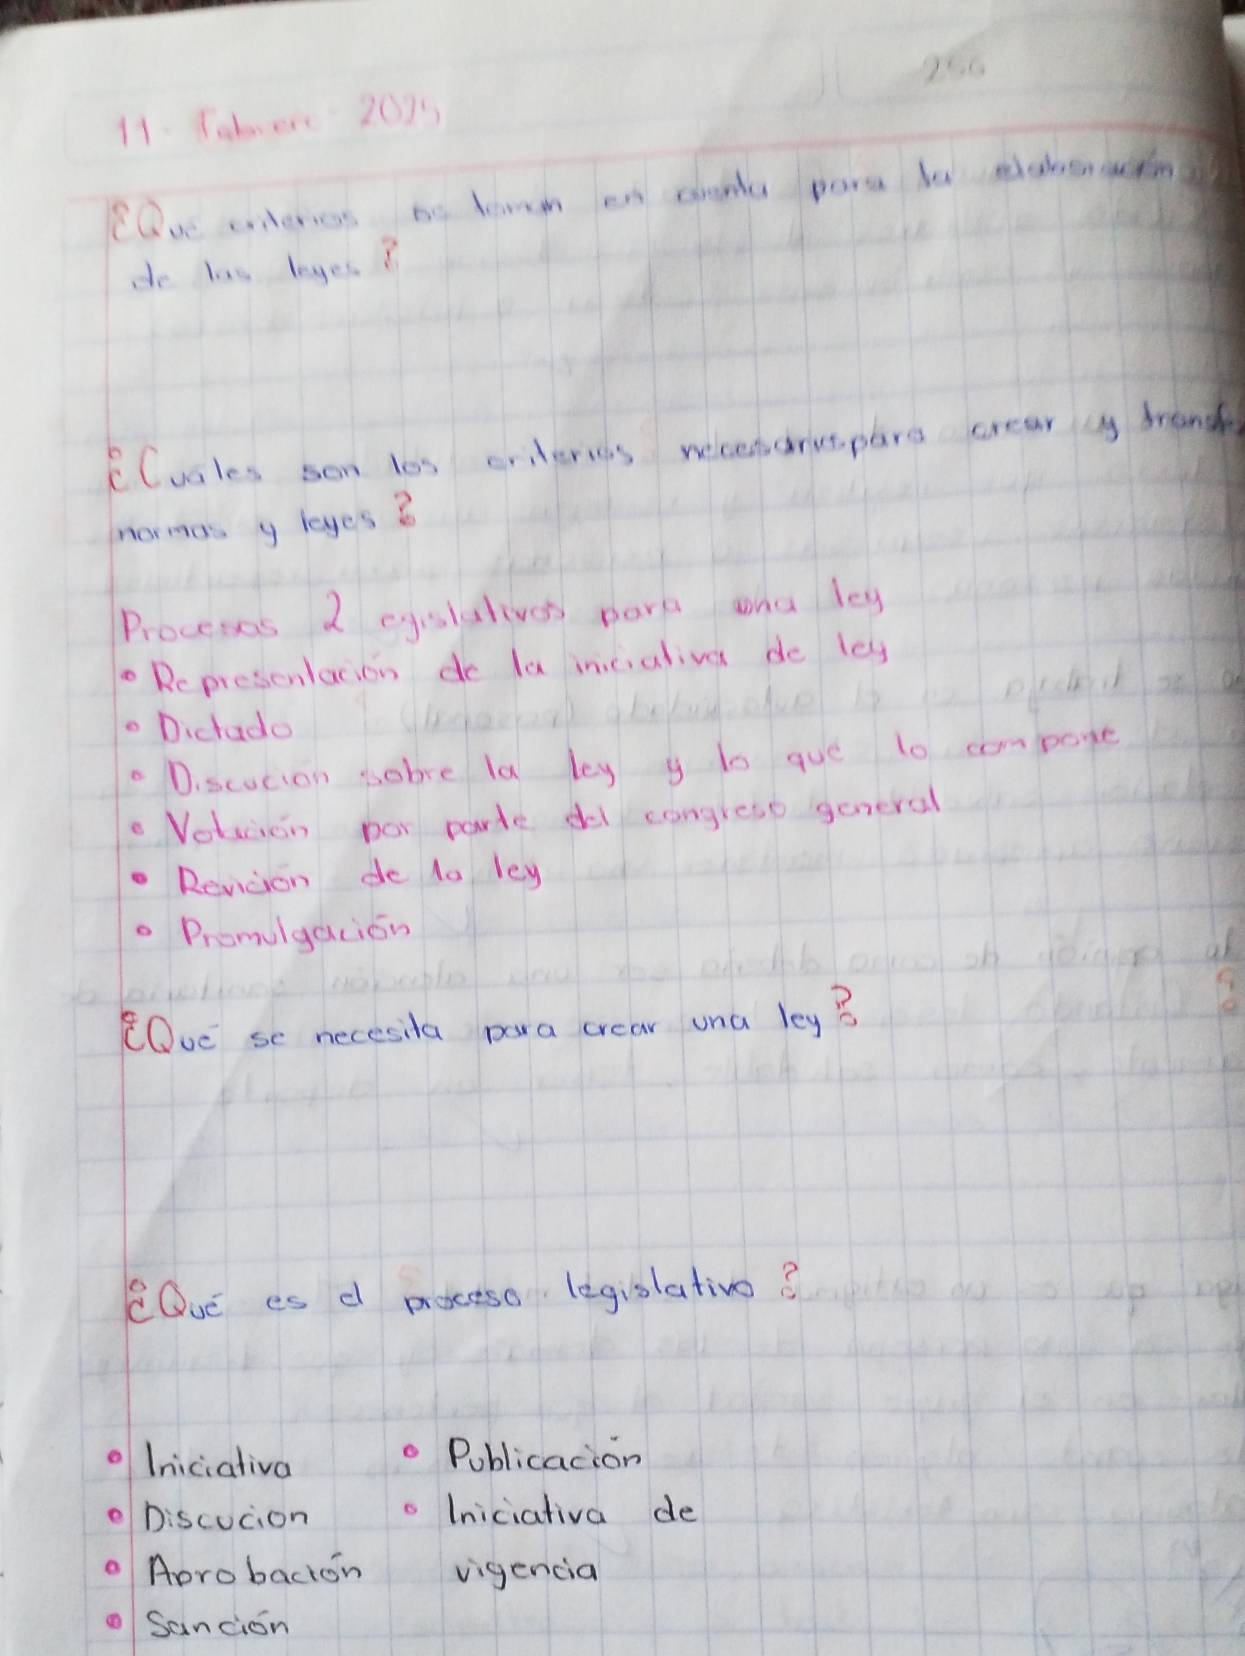 256
11 - Febrero - 2025
¿Qué criterios se toman en cuenta para la elaboración
de las leyes?
¿Cuáles son los criterios necesarios para crear y
normas y leyes?
Procesos Legislativos para una ley
• Representación de la iniciativa de ley
• Dictado
• Discución sobre la ley y lo que lo compone
• Votación por parte del congreso general
• Revición de la ley
• Promulgación
¿Qué se necesita para crear una ley?
¿Qué es el proceso legislativo?
• Iniciativa
• Discucion
• Aprobación
• Sanción
• Publicación
• Iniciativa de
vigencia